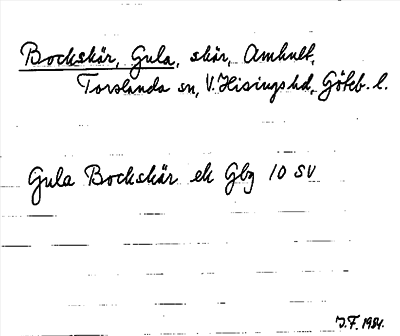 Bockskär, Gula, skär, Amhult,
Torslanda sn, V. Hisings hd, Göteb. l.
Gula Bockskär ek Gbg 10 SV
J.F. 1984.